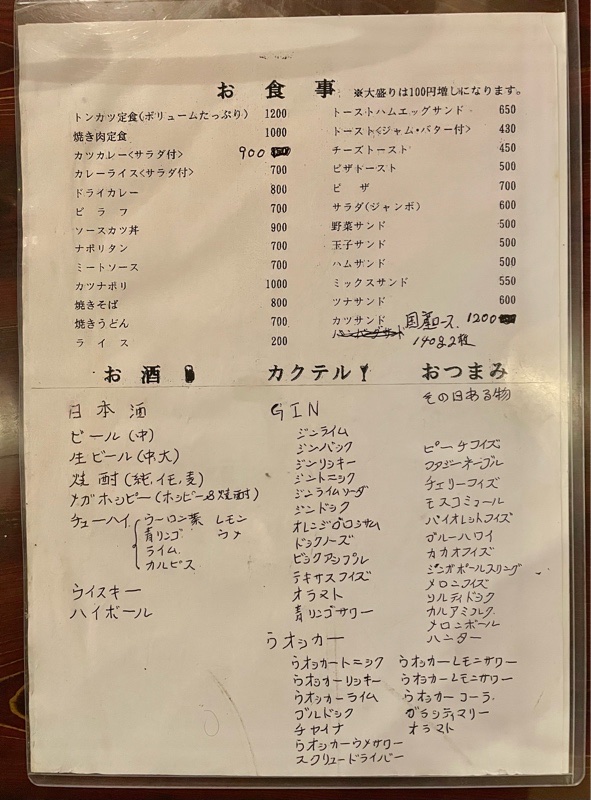 お食事 ※大盛りは100円増しになります。
トンカツ定食(ボリュームたっぷり) 1200
焼き肉定食 1000
カツカレー<サラダ付> 900
カレーライス<サラダ付> 700
ドライカレー 800
ピラフ 700
ソースカツ丼 900
ナポリタン 700
ミートソース 700
カツナポリ 1000
焼きそば 800
焼きうどん 700
ライス 200
トーストハムエッグサンド 650
トースト<ジャム・バター付> 430
チーズトースト 450
ピザトースト 500
ピザ 700
サラダ(ジャンボ) 600
野菜サンド 500
玉子サンド 500
ハムサンド 500
ミックスサンド 550
ツナサンド 600
カツサンド 国産ロース 1200
140g2枚
お酒
日本酒
ビール(中)
生ビール(中大)
焼酎(純,イモ,麦)
メガホッピー(ホッピー&焼酎)
チューハイ ウーロン茶 レモン
青リンゴ ウメ
ライム
カルピス
ウイスキー
ハイボール
カクテル
GIN
ジンライム
ジンバック
ジンリッキー
ジントニック
ジンライムソーダ
ジンドック
オレンジブロッサム
ドックノーズ
ビックアップル
テキサスフイズ
オラマト
青リンゴサワー
おつまみ
その日ある物
ピーチフイズ
ファジーネーブル
チェリーフイズ
モスコミュール
バイオレットフイズ
ブルーハワイ
カカオフイズ
シンガポールスリング
メロンフイズ
ソルティドック
カルアミルク
メロンボール
ハンター
ウオッカー
ウオッカートニック
ウオッカーリッキー
ウオッカーライム
ブルドック
チャイナ
ウオッカーウメサワー
スクリュードライバー
ウオッカーレモンサワー
ウオッカーレモンサワー
ウオッカーコーラ
ブラッディマリー
オラマト